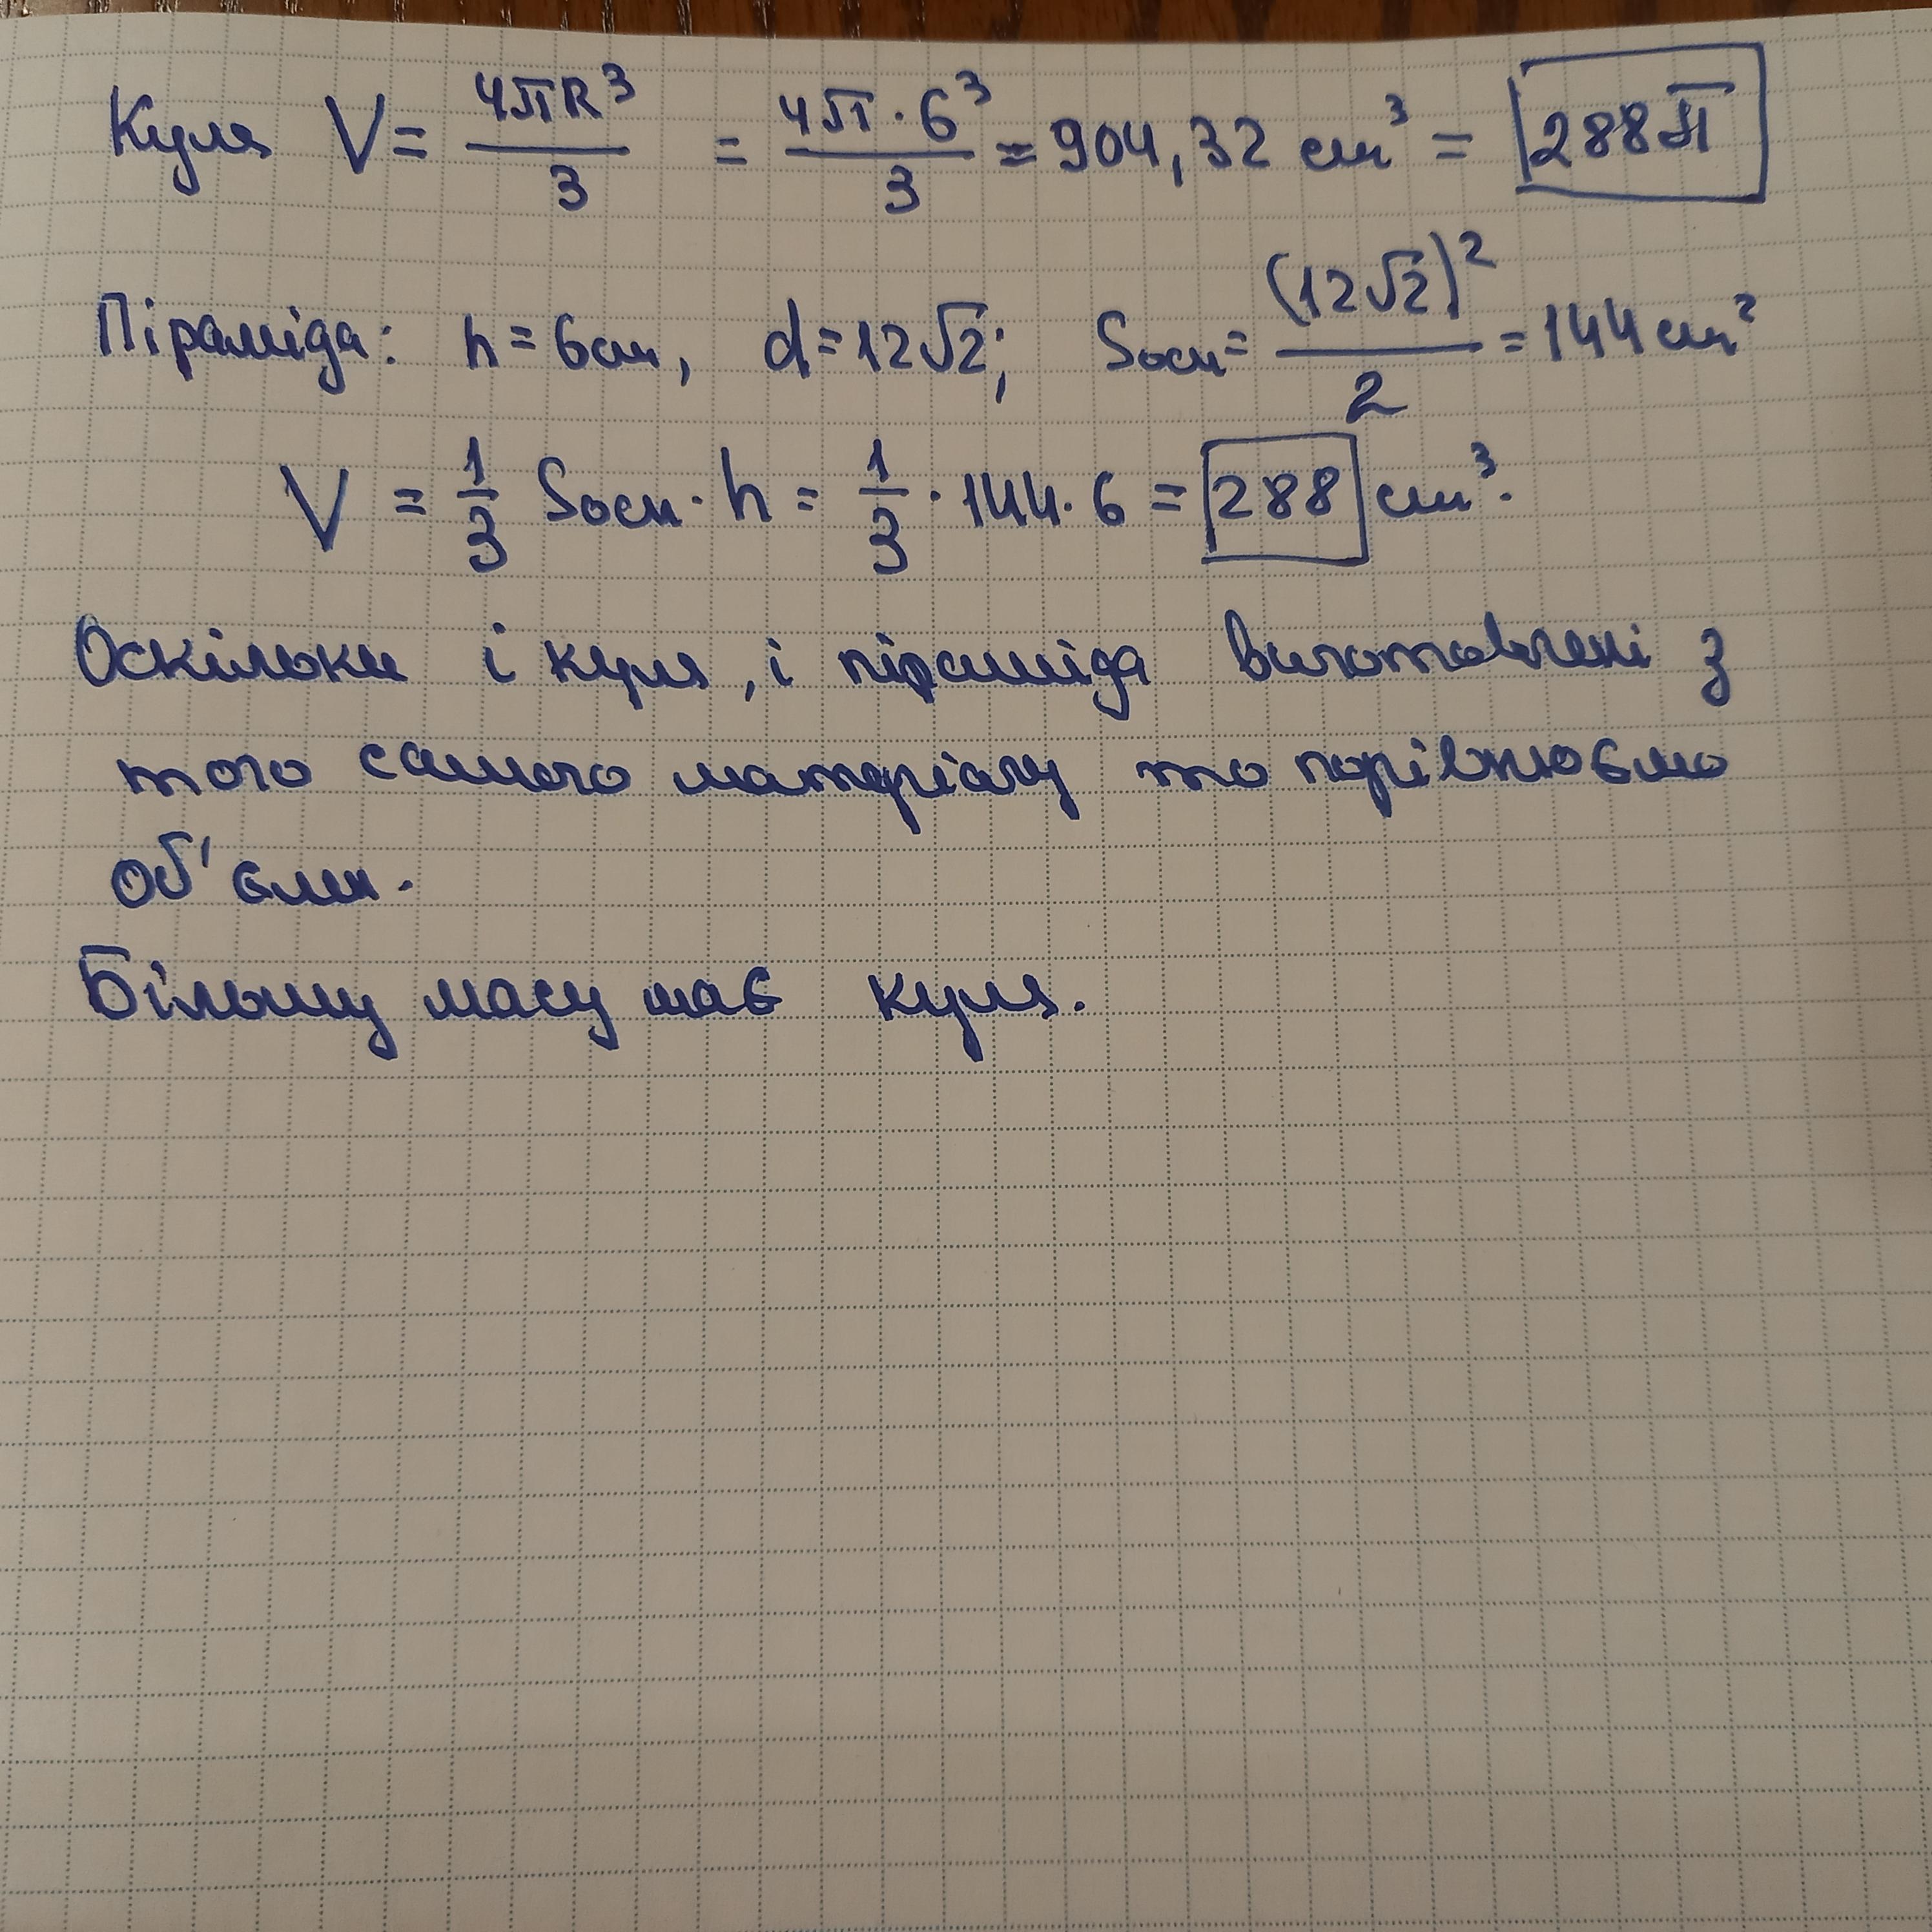 Куля V = 4πR³/3 = 4π·6³/3 = 904,32 см³ = 288π
Піраміда: h = 6см, d = 12√2; Sосн = (12√2)²/2 = 144 см²
V = 1/3 Sосн · h = 1/3 · 144 · 6 = 288 см³.
Оскільки і куля, і піраміда виготовлені з
того самого матеріалу то порівнюємо
об'єми.
Більшу масу має куля.